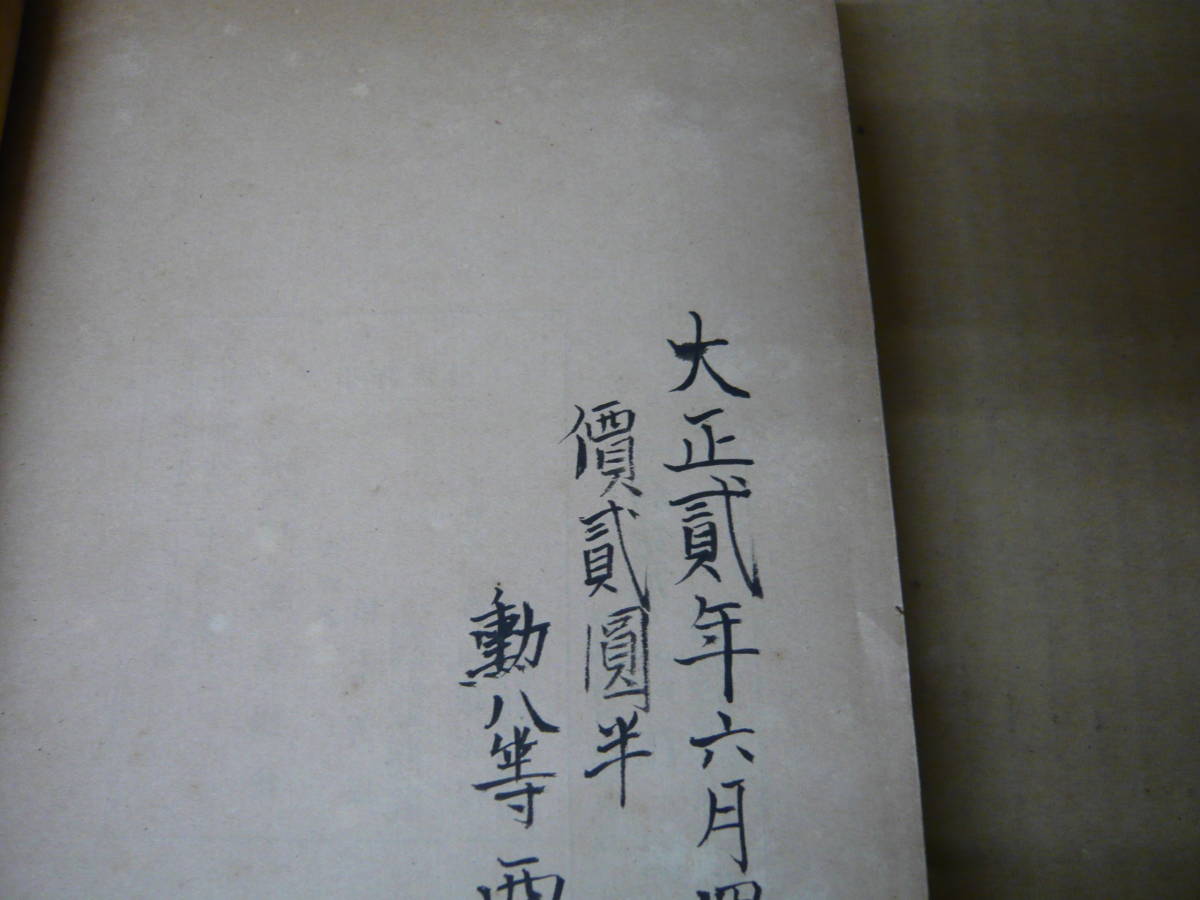 大正貳年六月四
價貳圓半
勳八等西